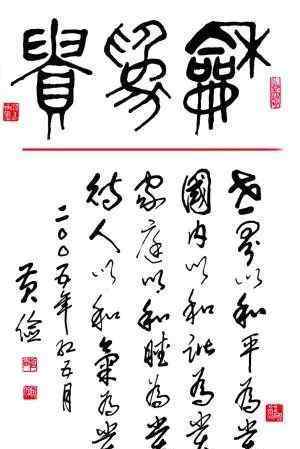 龢為貴
世界以和平為貴
國内以和諧為貴
家庭以和睦為貴
待人以和氣為貴
二〇〇五年红五月
黄儉